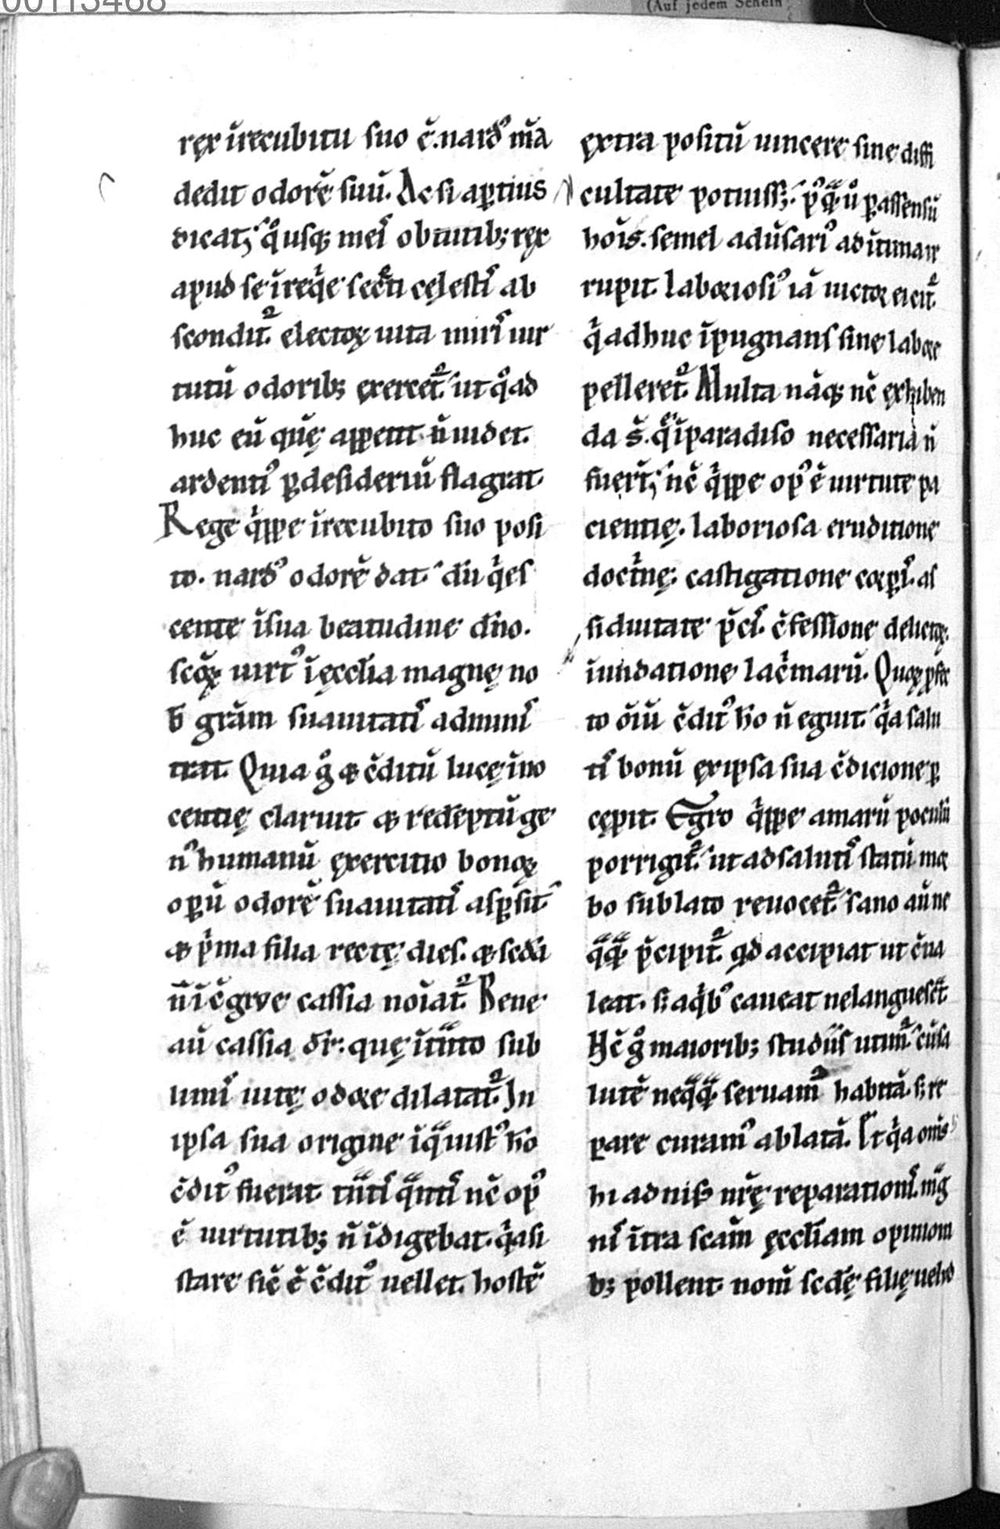 00113468
(Auf jedem Schein
rex ĩrecubitu suo ẽ. nardꝰ m̃a
dedit odorẽ suũ. Ac si aꝑtius
dicat; q̊usq; meiˢ obtutib; rex
apud se ĩreq̇e secͥti cęlestiˢ ab
scondit᷑ electoꝝ uita miriˢ uir
tutũ odorib; exercet᷑ ut q̊ ad
huc eũ quẽ appetit ñ uidet.
ardentiꝰ ꝑ desideriũ flagrat.
Rege q̇ppe ĩrecubito suo posi
to. nardꝰ odorẽ dat. dũ q̇es
cente ĩsua beatudine dño.
scõꝝ uirtꝰ ĩ ęcclia magnę no
b̃ grãm suauitatiˢ adminiˢ
trat. Quia g̊ & c̃ditũ lucę ĩno
centię claruit & redẽptũ ge
nꝰ humanũ exercitio bonoꝝ
oꝑũ odorẽ suauitatiˢ aspersit
& p̃ma filia rectę dies. & scďa
ñ ĩc̃grue cassia noĩat᷑. Bene
aũ cassia dr̃. quę ĩtãto sub
limiˢ iutę odore dilatat᷑. In
ipsa sua origine ĩq̃ iustꝰ hõ
c̃ditꝰ fuerat tãtiˢ q̃ntiˢ nẽ opꝰ
ẽ uirtutib; ñ ĩdigebat. q̇a si
stare sic̃ ẽ c̃ditꝰ uellet. hostẽ
extra positũ uincere sine diffi
cultate potuiss;. pꝰq̃ ů ꝑ assensũ
hoĩs. semel adũsariꝰ ad ĩtima ir
rupit. laboriosiꝰ iã uictor eicit᷑
q̇ adhuc ĩpugnanˢ sine labore
pelleret᷑. Multa nãq; nẽ exhiben
da s̃. q̃ ĩparadiso necessaria ñ
fuer̃t; nẽ q̇ppe opꝰ ẽ uirtute pa
cientię. laboriosa eruditione
doctͥnę. castigatione corpͥˢ. as
siduitate p̃ciˢ. c̃fessione delictoꝝ.
ĩundatione lacͥmarũ. Quoꝝ ꝓfec
to oĩũ c̃ditꝰ hõ ñ eguit. q̇a salu
tiˢ bonũ ex ipsa sua c̃dicione ꝑ
cepit. Egro q̇ppe amarũ poculũ
porrigit᷑. ut ad salutiˢ statũ mor
bo sublato reuocet᷑. sano aũ ne
q̃q̃ p̃cipit᷑ qd accipiat ut c̃ua
leat. s; a q̇bꝰ caueat ne languescat
Hc̃ g̊ maiorib; studiis utim᷑ cũ sa
lutẽ neq̃q̃ seruamꝰ habitã. s; re
parare curamꝰ ablatã. Et q̇a om̃s
hi adnisꝰ nr̃ę reparationiˢ. mag
niˢ ĩtra scãm ęccliam opinioni
b; pollent. nom̃ scďę filię uelud